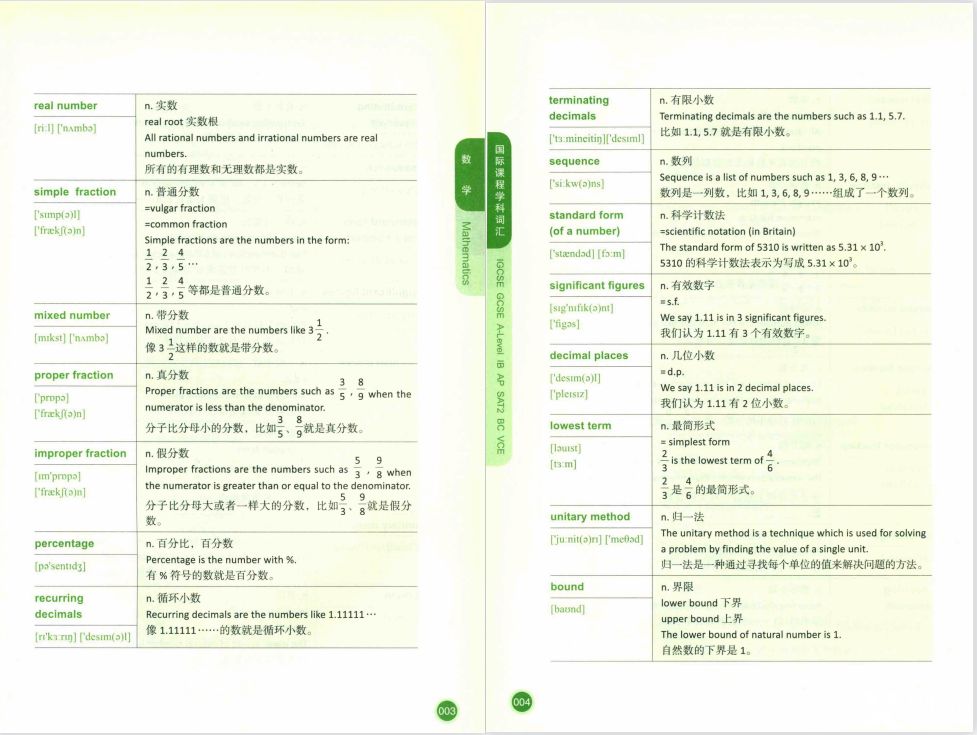 real number
[riːl] ['nʌmbə]
n. 实数
real root 实数根
All rational numbers and irrational numbers are real
numbers.
所有的有理数和无理数都是实数。
simple fraction
['sɪmp(ə)l]
['frækʃ(ə)n]
n. 普通分数
=vulgar fraction
=common fraction
Simple fractions are the numbers in the form:
1/2, 2/3, 4/5 …
1/2, 2/3, 4/5 等都是普通分数。
mixed number
[mɪkst] ['nʌmbə]
n. 带分数
Mixed number are the numbers like 3 1/2 .
像 3 1/2 这样的数就是带分数。
proper fraction
['prɒpə]
['frækʃ(ə)n]
n. 真分数
Proper fractions are the numbers such as 3/5 , 8/9 when the
numerator is less than the denominator.
分子比分母小的分数，比如 3/5 、 8/9 就是真分数。
improper fraction
[ɪm'prɒpə]
['frækʃ(ə)n]
n. 假分数
Improper fractions are the numbers such as 5/3 , 9/8 when
the numerator is greater than or equal to the denominator.
分子比分母大或者一样大的分数，比如 5/3 、 9/8 就是假分
数。
percentage
[pə'sentɪdʒ]
n. 百分比，百分数
Percentage is the number with %.
有 % 符号的数就是百分数。
recurring
decimals
[rɪ'kɜːrɪŋ] ['desɪm(ə)l]
n. 循环小数
Recurring decimals are the numbers like 1.11111…
像 1.11111……的数就是循环小数。
数学
Mathematics
003
国际课程学科词汇
IGCSE GCSE A-Level IB AP SAT2 BC VCE
terminating
decimals
['tɜːmineitiŋ]['desɪml]
n. 有限小数
Terminating decimals are the numbers such as 1.1, 5.7.
比如 1.1, 5.7 就是有限小数。
sequence
['siːkw(ə)ns]
n. 数列
Sequence is a list of numbers such as 1, 3, 6, 8, 9…
数列是一列数，比如 1, 3, 6, 8, 9……组成了一个数列。
standard form
(of a number)
['stændəd] [fɔːm]
n. 科学计数法
=scientific notation (in Britain)
The standard form of 5310 is written as 5.31 × 10³.
5310 的科学计数法表示为写成 5.31 × 10³。
significant figures
[sɪg'nɪfɪk(ə)nt]
['figəs]
n. 有效数字
= s.f.
We say 1.11 is in 3 significant figures.
我们认为 1.11 有 3 个有效数字。
decimal places
['desɪm(ə)l]
['pleɪsɪz]
n. 几位小数
= d.p.
We say 1.11 is in 2 decimal places.
我们认为 1.11 有 2 位小数。
lowest term
[ləuɪst]
[tɜːm]
n. 最简形式
= simplest form
2/3 is the lowest term of 4/6 .
2/3 是 4/6 的最简形式。
unitary method
['juːnit(ə)rɪ] ['meθəd]
n. 归一法
The unitary method is a technique which is used for solving
a problem by finding the value of a single unit.
归一法是一种通过寻找每个单位的值来解决问题的方法。
bound
[baʊnd]
n. 界限
lower bound 下界
upper bound 上界
The lower bound of natural number is 1.
自然数的下界是 1。
004